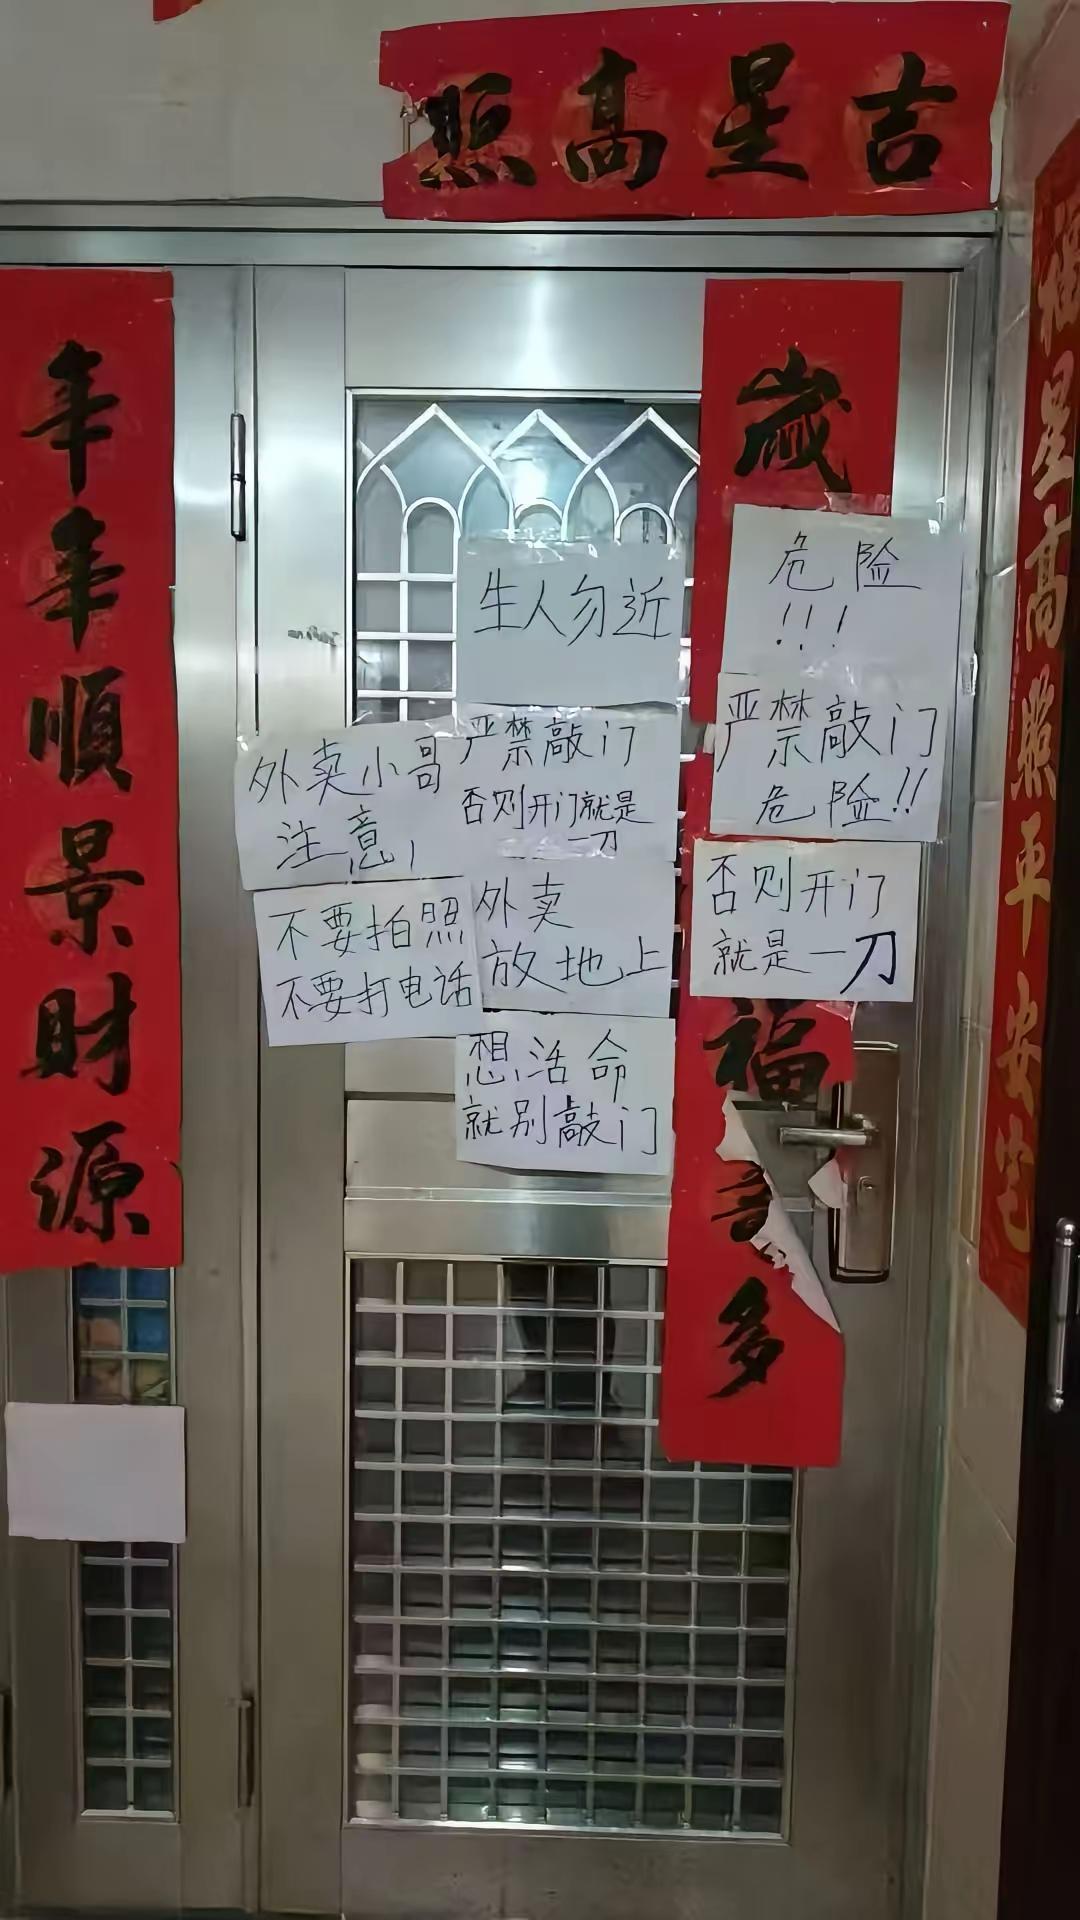 吉星高照
年年順景財源
歲
福
多
福星高照平安宅
生人勿近
危险
!!!
严禁敲门
危险!!
否则开门
就是一刀
外卖小哥
注意!
严禁敲门
否则开门就是
一刀
不要拍照
不要打电话
外卖
放地上
想活命
就别敲门